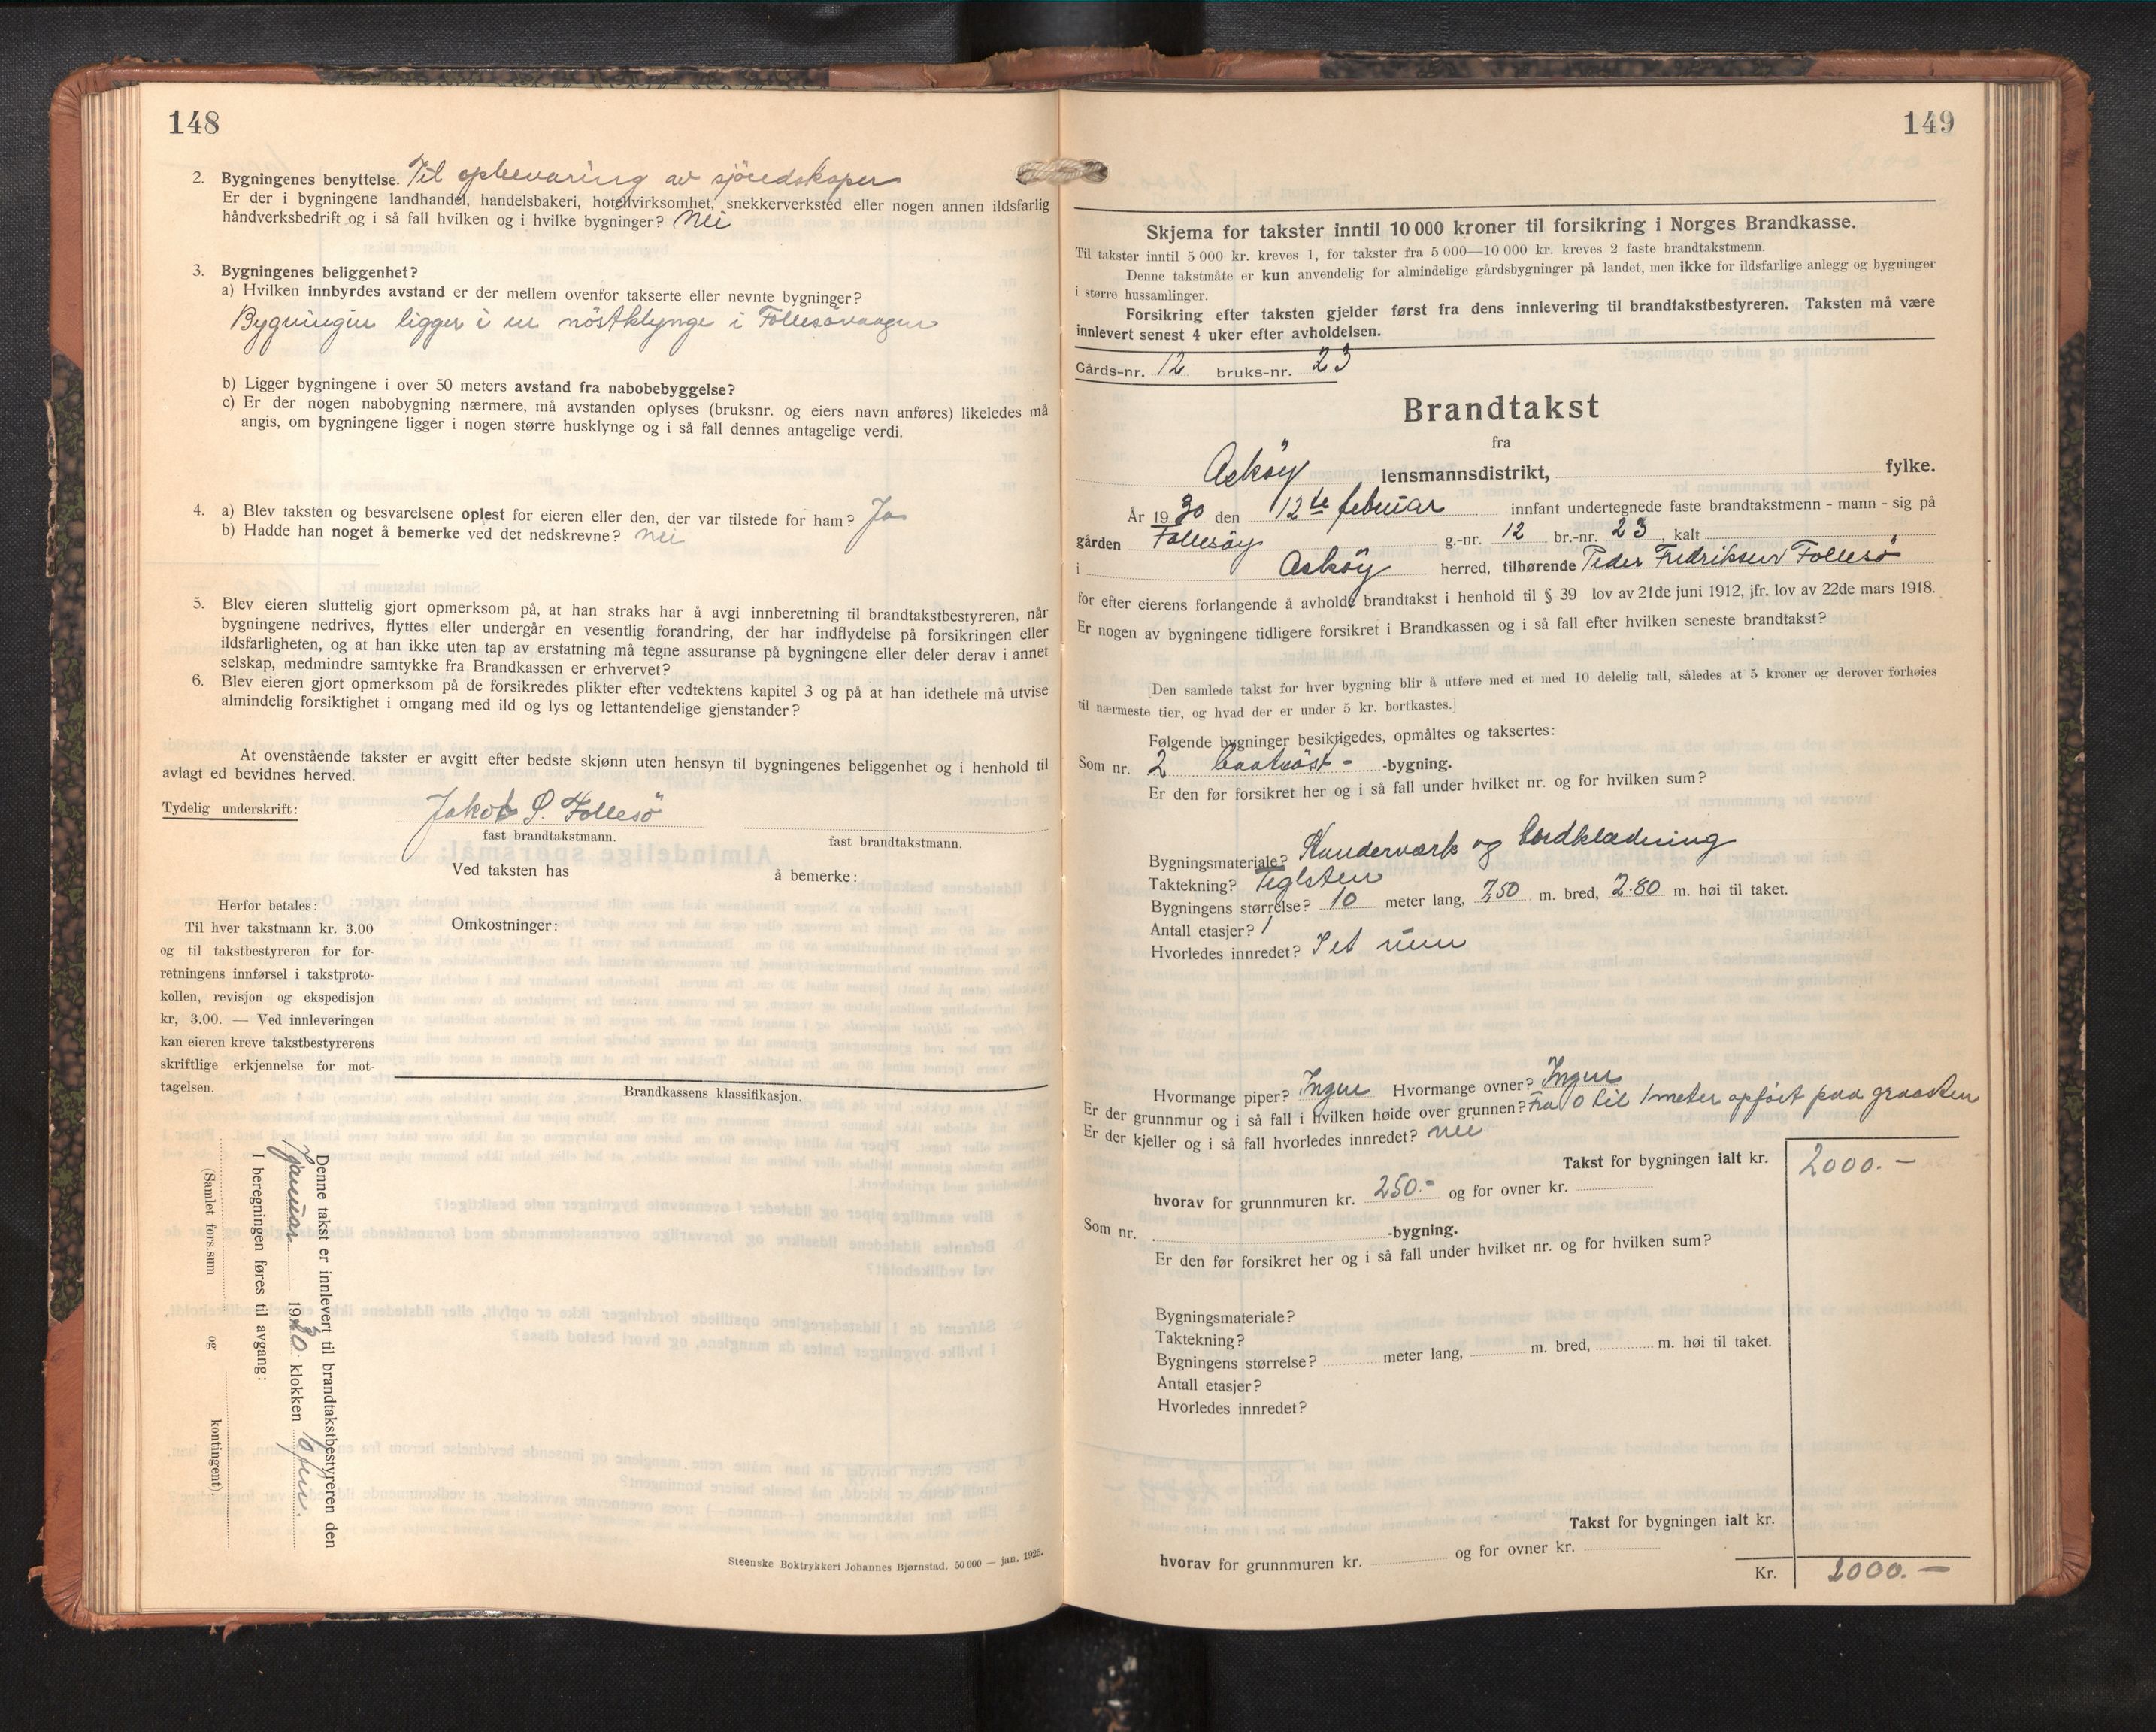 148
2. Bygningenes benyttelse. Til opbevaring av sjöredskaper
Er der i bygningene landhandel, handelsbakeri, hotellvirksomhet, snekkerverksted eller nogen annen ildsfarlig
håndverksbedrift og i så fall hvilken og i hvilke bygninger? Nei
3. Bygningenes beliggenhet?
a) Hvilken innbyrdes avstand er der mellem ovenfor takserte eller nevnte bygninger?
Bygningen ligger i en nöstklynge i Follesövaagen
b) Ligger bygningene i over 50 meters avstand fra nabobebyggelse?
c) Er der nogen nabobygning nærmere, må avstanden oplyses (bruksnr. og eiers navn anføres) likeledes må
angis, om bygningene ligger i nogen større husklynge og i så fall dennes antagelige verdi.
4. a) Blev taksten og besvarelsene oplest for eieren eller den, der var tilstede for ham? Ja
b) Hadde han noget å bemerke ved det nedskrevne? nei
5. Blev eieren sluttelig gjort opmerksom på, at han straks har å avgi innberetning til brandtakstbestyreren, når
bygningene nedrives, flyttes eller undergår en vesentlig forandring, der har indflydelse på forsikringen eller
ildsfarligheten, og at han ikke uten tap av erstatning må tegne assuranse på bygningene eller deler derav i annet
selskap, medmindre samtykke fra Brandkassen er erhvervet?
6. Blev eieren gjort opmerksom på de forsikredes plikter efter vedtektens kapitel 3 og på at han idethele må utvise
almindelig forsiktighet i omgang med ild og lys og lettantendelige gjenstander?
At ovenstående takster er avgitt efter bedste skjønn uten hensyn til bygningenes beliggenhet og i henhold til
avlagt ed bevidnes herved.
Tydelig underskrift: Jakob S. Follesö
fast brandtakstmann. fast brandtakstmann.
Ved taksten has å bemerke:
Herfor betales:
Til hver takstmann kr. 3.00
og til takstbestyreren for for-
retningens innførsel i takstproto-
kollen, revisjon og ekspedisjon
kr, 3.00. — Ved innleveringen
kan eieren kreve takstbestyrerens
skriftlige erkjennelse for mot-
tagelsen.
Omkostninger:
Brandkassens klassifikasjon.
Denne takst er innlevert til brandtakstbestyreren den
januar 1930 klokken
I beregningen føres til avgang:
(Samlet fors.sum og kontingent).
Steenske Boktrykkeri Johannes Bjørnstad. 50 000 — jan. 1925.
149
Skjema for takster inntil 10 000 kroner til forsikring i Norges Brandkasse.
Til takster inntil 5 000 kr. kreves 1, for takster fra 5 000—10 000 kr. kreves 2 faste brandtakstmenn.
Denne takstmåte er kun anvendelig for almindelige gårdsbygninger på landet, men ikke for ildsfarlige anlegg og bygninger
i større hussamlinger.
Forsikring efter taksten gjelder først fra dens innlevering til brandtakstbestyreren. Taksten må være
innlevert senest 4 uker efter avholdelsen.
Gårds-nr. 12 bruks-nr. 23
Brandtakst
fra
Asköy lensmannsdistrikt, fylke.
År 1930 den 12te februar innfant undertegnede faste brandtakstmenn - mann - sig på
gården Follesöy g.-nr. 12 br.-nr. 23, kalt
i Asköy herred, tilhørende Peder Fredriksen Follesö
for efter eierens forlangende å avholde brandtakst i henhold til § 39 lov av 21de juni 1912, jfr. lov av 22de mars 1918.
Er nogen av bygningene tidligere forsikret i Brandkassen og i så fall efter hvilken seneste brandtakst?
[Den samlede takst for hver bygning blir å utføre med et med 10 delelig tall, således at 5 kroner og derover forhøies
til nærmeste tier, og hvad der er under 5 kr. bortkastes.]
Følgende bygninger besiktigedes, opmåltes og taksertes:
Som nr. 2 baatnöst- -bygning.
Er den før forsikret her og i så fall under hvilket nr. og for hvilken sum?
Bygningsmateriale? Standerværk og bordklædning
Taktekning? Teglsten
Bygningens størrelse? 10 meter lang, 7.50 m. bred, 2.80 m. høi til taket.
Antall etasjer? 1
Hvorledes innredet? I et rum
Hvormange piper? Ingen Hvormange ovner? Ingen
Er der grunnmur og i så fall i hvilken høide over grunnen? Fra 0 til 1 meter opfört paa graasten
Er der kjeller og i så fall hvorledes innredet? nei
Takst for bygningen ialt kr. 2000.-
hvorav for grunnmuren kr. 250.- og for ovner kr.
Som nr. -bygning.
Er den før forsikret her og i så fall under hvilket nr. og for hvilken sum?
Bygningsmateriale?
Taktekning?
Bygningens størrelse? meter lang, m. bred, m. høi til taket.
Antall etasjer?
Hvorledes innredet?
Takst for bygningen ialt kr.
hvorav for grunnmuren kr. og for ovner kr.
Kr. 2000.-